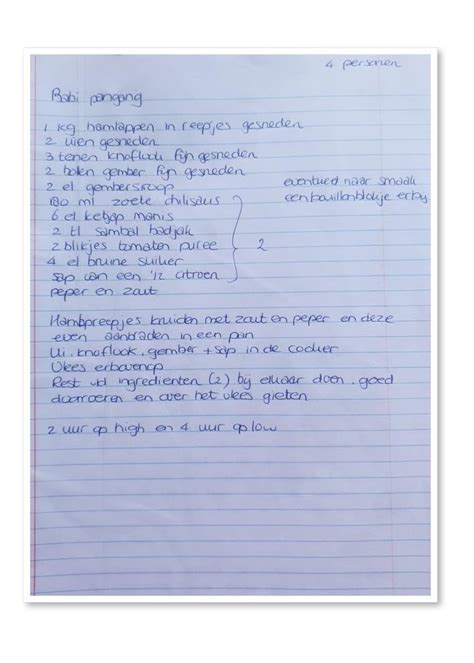 4 personen
Babi pangang
1 kg hamlappen in reepjes gesneden
2 uien gesneden
3 tenen knoflook fijn gesneden
2 bolen gember fijn gesneden
2 el gembersiroop
eventueel naar smaak
een bouillonblokje erbij
180 ml zoete chilisaus
6 el ketjap manis
2 tl sambal badjak
2 blikjes tomaten puree 2
4 el bruine suiker
sap van een 1/2 citroen
peper en zout
Hamlapreepjes kruiden met zout en peper en deze
even aanbraden in een pan
Ui, knoflook, gember + sap in de cooker
Vlees erbovenop
Rest vd ingredienten (2) bij elkaar doen, goed
doorroeren en over het vlees gieten
2 uur op high en 4 uur op low